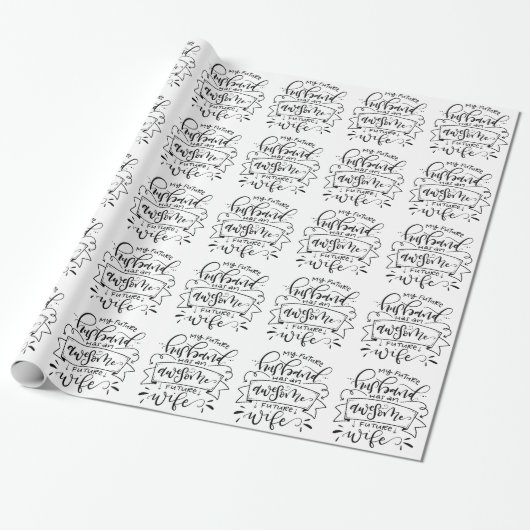 MY FUTURE
husband
HAS AN
awesome
FUTURE
wife